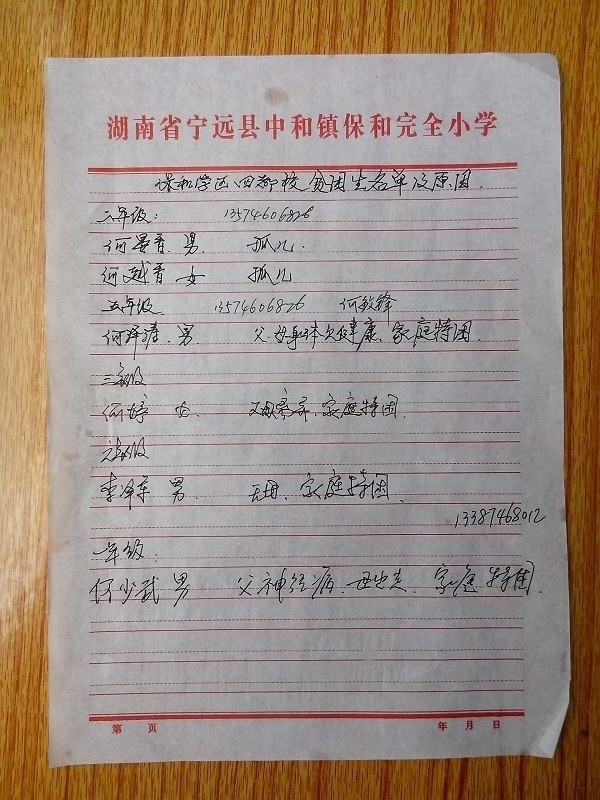 湖南省宁远县中和镇保和完全小学
保和学区四都校贫困生名单及原因.
六年级: 13574606826
何晏青. 男. 孤儿.
何越青 女 孤儿
五年级 13574606826 何敏锋
何泽清. 男 父.母身体欠健康、家庭特困.
三年级
何婷 女. 家庭特困.
六年级
李泽军 男. 无母、家庭特困.
13387468012
一年级:
何少武 男 父神经病. 母出走. 家庭特困.
第 页 年 月 日